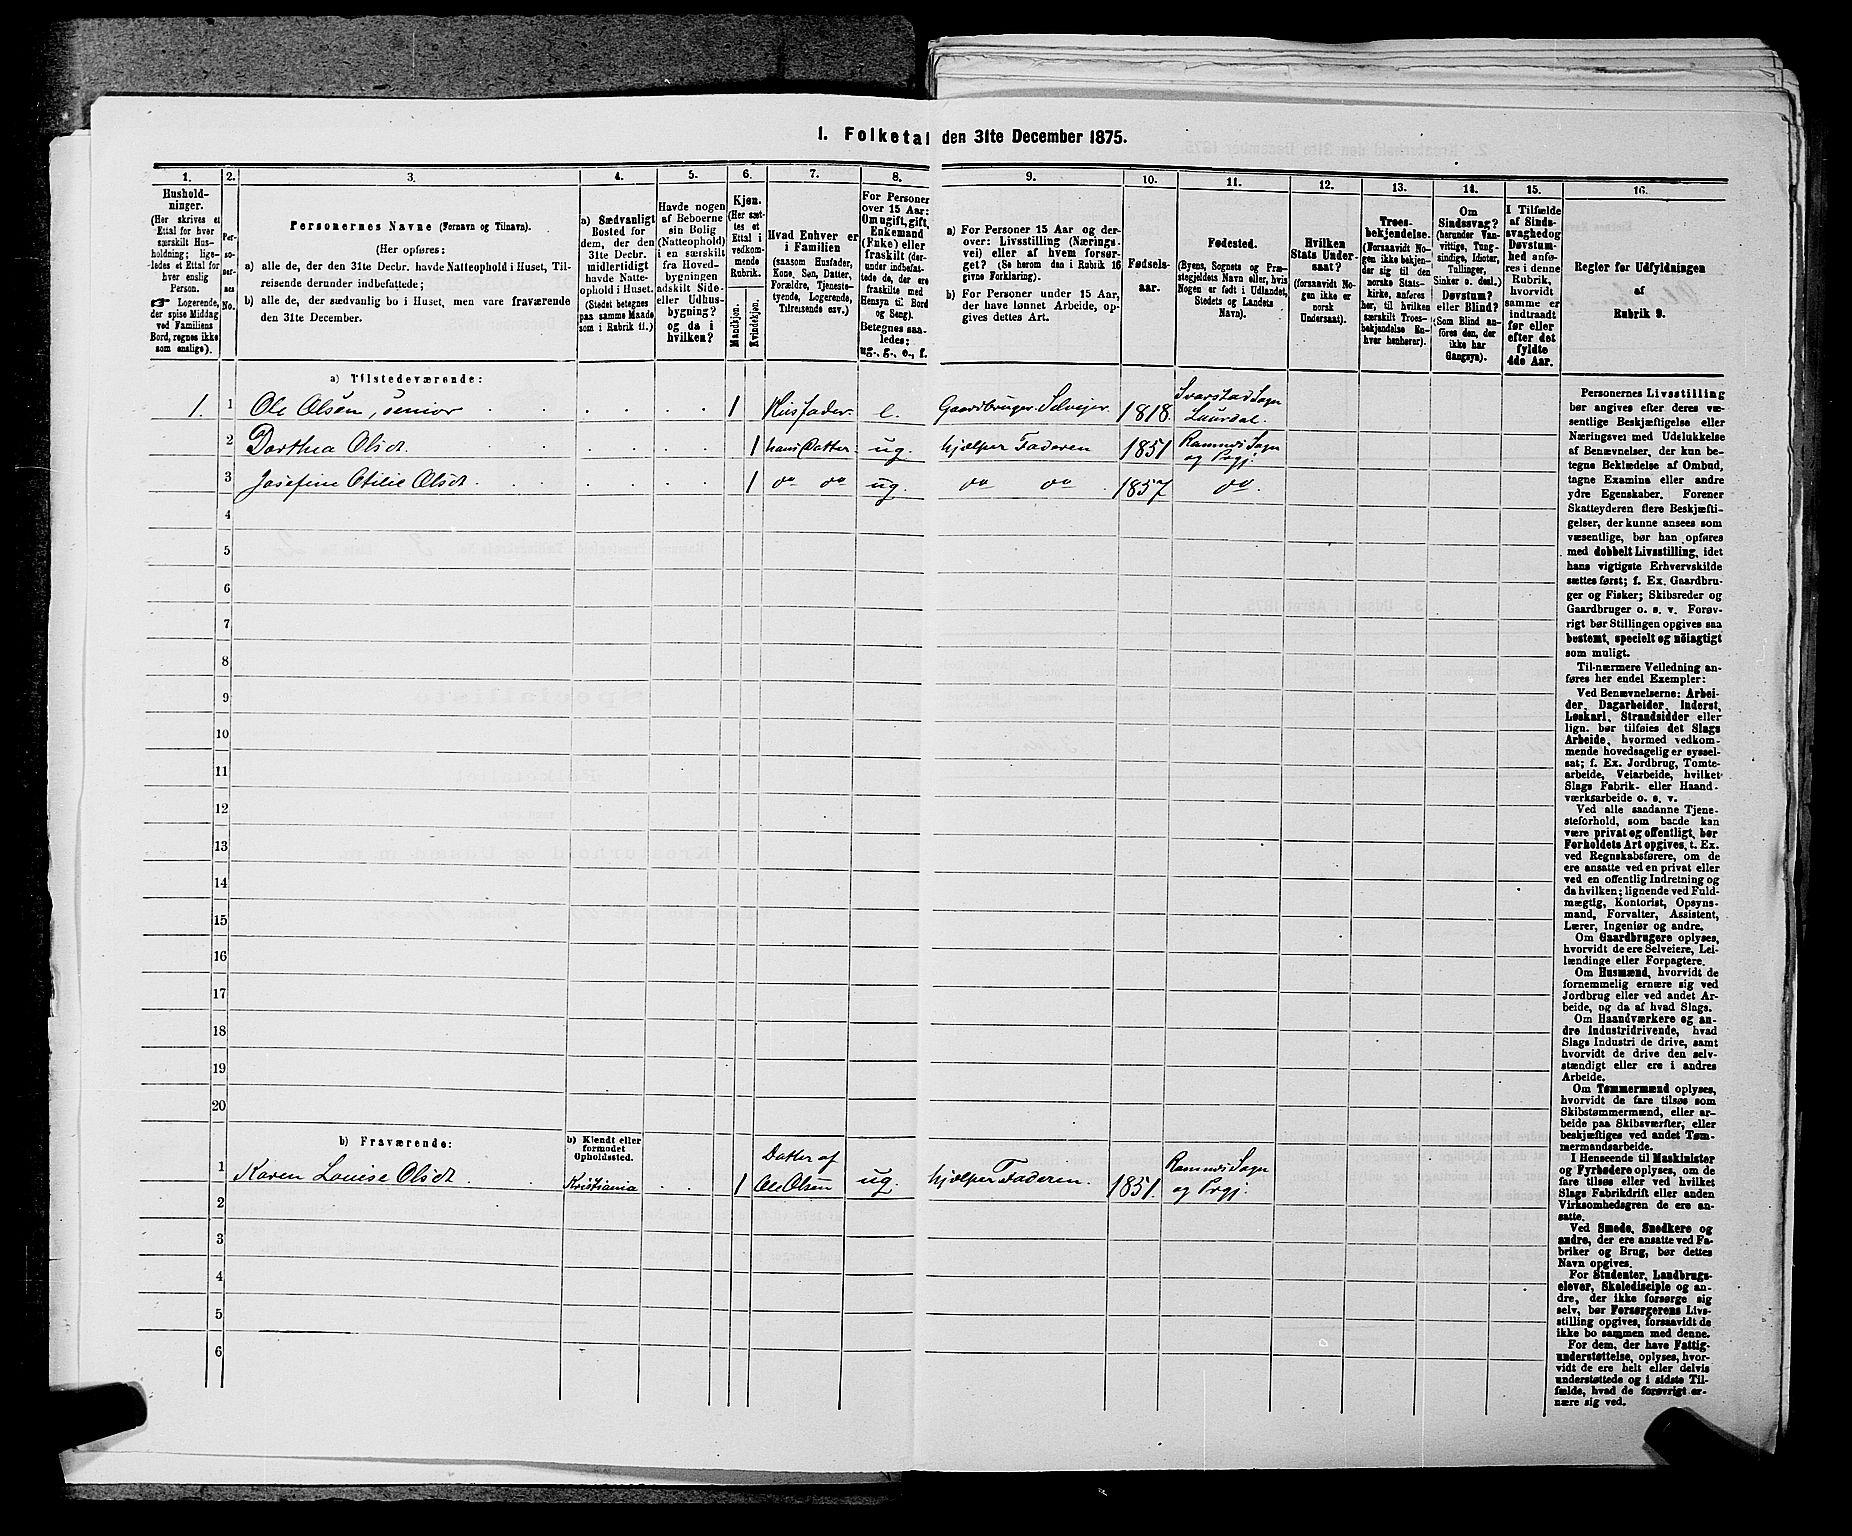 1. Folketal den 31te December 1875.
1. 2. 3. 4. 5. 6. 7. 8. 9. 10. 11. 12. 13. 14. 15. 16.
Hushold-
ninger.
(Her skrives et
Ettal for hver
særskilt Hus-
holdning; lige-
ledes et Ettal for
hver enslig
Person.
☞ Logerende,
der spise Middag
ved Familiens
Bord, regnes ikke
som enslige).
Per-
so-
ner-
nes
No.
Personernes Navne (Fornavn og Tilnavn).
(Her opføres:
a) alle de, der den 31te Decbr. havde Natteophold i Huset, Til-
reisende derunder indbefattede;
b) alle de, der sædvanlig bo i Huset, men vare fraværende
den 31te December.
a) Sædvanligt
Bosted for
dem, der den
31te Decbr.
midlertidigt
havde Natte-
ophold i Huset.
(Stedet betegnes
paa samme Maade
som i Rubrik 11.)
Havde nogen
af Beboerne
sin Bolig
(Natteophold)
i en særskilt
fra Hoved-
bygningen
adskilt Side-
eller Udhus-
bygning?
og da i
hvilken?
Kjøn.
(Her sæt-
tes et
Ettal i
vedkom-
mende
Rubrik.
Mandkjøn.
Kvindekjøn.
Hvad Enhver er
i Familien
(saasom Husfader,
Kone, Søn, Datter,
Forældre, Tjeneste-
tyende, Logerende,
Tilreisende osv.)
For Personer
over 15 Aar:
Om ugift, gift,
Enkemand
(Enke) eller
fraskilt (der-
under indbefat-
tede de, der ere
fraskilte med
Hensyn til Bord
og Seng).
Betegnes saa-
ledes:
ug., g., e., f.
a) For Personer 15 Aar og der-
over: Livsstilling (Nærings-
vei) eller af hvem forsør-
get? (Se herom den i Rubrik 16
givne Forklaring).
b) For Personer under 15 Aar,
der have lønnet Arbeide, op-
gives dettes Art.
Fødsels-
aar.
Fødested.
(Byens, Sognets og Præ-
stegjeldets Navn eller, hvis
Nogen er født i Udlandet,
Stedets og Landets
Navn).
Hvilken
Stats Under-
saat?
(forsaavidt No-
gen ikke er
norsk
Undersaat).
Troes-
bekjendelse.
(Forsaavidt No-
gen ikke bekjen-
der sig til den
norske Stats-
kirke, anføres
her, til hvilken
særskilt Troes-
bekjendelse En-
hver henhører).
Om
Sindssvag?
(herunder Van-
vittige, Tung-
sindige, Idioter,
Tullinger,
Sinker o. desl.)
Døvstum?
eller Blind?
(Som Blind an-
føres den, der
ikke har
Gangsyn).
I Tilfælde
af Sinds-
svaghed og
Døvstum-
hed anfø-
res i denne
Rubrik,
hvorvidt
samme er
indtraadt
før eller
efter det
fyldte
4de Aar.
Regler for Udfyldningen
af
Rubrik 9.
a) Tilstedeværende:
1. 1 Ole Olsen, senior 1 Husfader e. Gaardbruger. Selveier. 1818. Svarstad Sogn
Laurdal.
2 Dorthea Olsdt. 1 hans Datter ug. hjælper Faderen 1851 Ramnæs Sogn
og Prgj.
3 Josefine Otilie Olsdt. 1 do do ug. do do 1857 do.
4
5
6
7
8
9
10
11
12
13
14
15
16
17
18
19
20
b) Fraværende:
b) Kjendt eller
formodet
Opholdssted.
1 Karen Louise Olsdt. Kristiania 1 Datter af
Ole Olsen ug. hjælper Faderen. 1851. Ramnæs Sogn
og Prgj.
2
3
4
5
6
Personernes Livsstilling
bør angives efter deres væ-
sentlige Beskjæftigelse eller
Næringsvei med Udelukkelse
af Benævnelser, der kun be-
tegne Beklædelse af Ombud,
tagne Examina eller andre
ydre Egenskaber. Forener
Skatteyderen flere Beskjæfti-
gelser, der kunne ansees som
væsentlige, bør han opføres
med dobbelt Livsstilling, idet
hans vigtigste Erhvervskilde
sættes først; f. Ex. Gaardbru-
ger og Fisker; Skibsreder og
Gaardbruger o. s. v. Forøv-
rigt bør Stillingen opgives saa
bestemt, specielt og nöiagtigt
som muligt.
Til nærmere Veiledning an-
føres her endel Exempler:
Ved Benævnelserne: Arbei-
der, Dagarbeider, Inderst,
Løskarl, Strandsidder eller
lign. bør tilføies det Slags
Arbeide, hvormed vedkom-
mende hovedsagelig er syssel-
sat; f. Ex. Jordbrug, Tomte-
arbeide, Veiarbeide, hvilket
Slags Fabrik- eller Haand-
værksarbeide o. s. v.
Ved alle saadanne Tjene-
steforhold, som baade kan
være privat og offentligt, bør
Forholdets Art opgives, t. Ex.
ved Regnskabsførere, om de
ere ansatte ved en privat eller
ved en offentlig Indretning og
da hvilken; lignende ved Fuld-
mægtig, Kontorist, Opsyns-
mand, Forvalter, Assistent,
Lærer, Ingeniør og andre.
Om Gaardbrugere oplyses,
hvorvidt de ere Selveiere, Lei-
lændinge eller Forpagtere.
Om Husmænd, hvorvidt de
fornemmelig ernære sig ved
Jordbrug eller ved andet Ar-
beide, og da af hvad Slags.
Om Haandværkere og an-
dre Industridrivende, hvad
Slags Industri de drive, samt
hvorvidt de drive den selv-
stændigt eller ere i andres
Arbeide.
Om Tømmermænd oplyses,
hvorvidt de fare tilsøs som
Skibstømmermænd, eller ar-
beide paa Skibsværfter, eller
beskjæftiges ved andet Tøm-
mermandsarbeide.
I Henseende til Maskinister
og Fyrbødere oplyses, om de
fare tilsøs eller ved hvilket
Slags Fabrikdrift eller anden
Virksomhedsgren de ere an-
satte.
Ved Smede, Snedkere og
andre, der ere ansatte ved Fa-
briker og Brug, bør dettes
Navn opgives.
For Studenter, Landbrugs-
elever, Skoledisciple og an-
dre, der ikke forsørge sig
selv, bør Forsørgerens Livs-
stilling opgives, forsaavidt de
ikke bo sammen med denne.
For dem, der have Fattig-
understøttelse, oplyses, hvor-
vidt de ere helt eller delvis
understøttede og i sidste Til-
fælde, hvad de forøvrigt er-
nære sig ved.